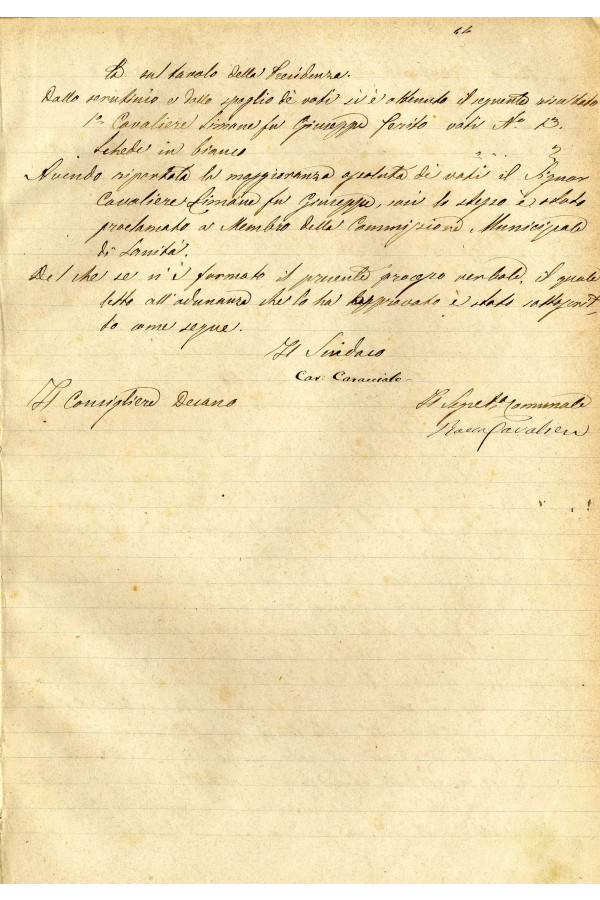 44
ta sul tavolo della Presidenza.
Dallo scrutinio e dallo spoglio de' voti si è ottenuto il seguente risultato
1º Cavaliere Simone fu Giuseppe Perito voti Nº 13.
Schede in bianco " .... "
Avendo riportata la maggioranza assoluta di voti il Signor
Cavaliere Simone fu Giuseppe, così lo stesso è stato
proclamato a Membro della Commissione Municipale
di Sanità.
Del che se n'è formato il presente processo verbale, il quale
letto all'adunanza che lo ha approvato è stato sottoscrit-
to come segue.
Il Sindaco
Cav: Caracciolo
Il Consigliere Decano
Il Segret.º Comunale
Cavalieri